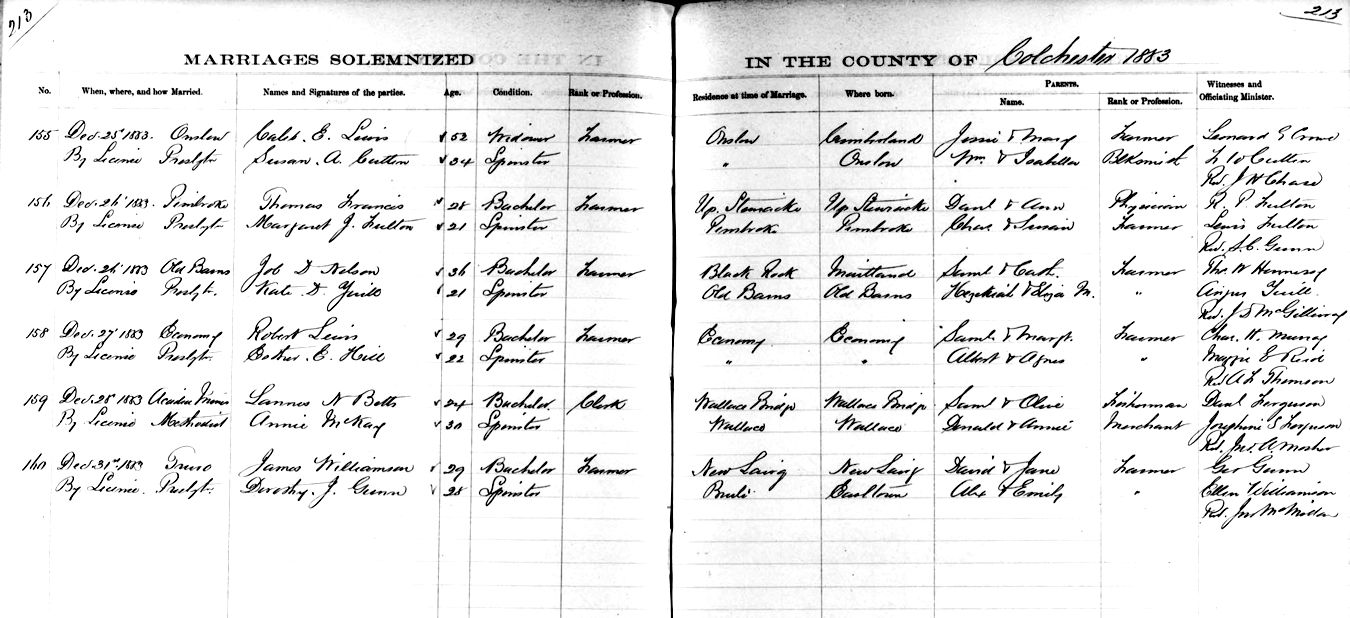 213
213
MARRIAGES SOLEMNIZED IN THE COUNTY OF Colchester 1883
No. When, where, and how Married. Names and Signatures of the parties. Age. Condition. Rank or Profession. Residence at time of Marriage. Where born. PARENTS. Name. Rank or Profession. Witnesses and Officiating Minister.
155 Dec. 25th 1883. Onslow Caleb. E. Lewis 52 Widower Farmer Onslow Cumberland Jessie & Mary Farmer Leonard E Crowe
By Licence Presbytn Susan. A. Cutten 34 Spinster " Onslow Wm. & Isabella Blksmith Cutten
Rev. J H Chase
156 Dec. 26th 1883. Pembroke Thomas Francis 28 Bachelor Farmer Up. Stewiacke Up. Stewiacke Danl & Ann Physician R. P. Fulton
By Licence Presbytn Margaret J. Fulton 21 Spinster Pembroke Pembroke Chas. & Susan Farmer Lewis Fulton
Rev. S. C. Gunn
157 Dec. 26th 1883 Old Barns Job D Nelson 36 Bachelor Farmer Black Rock Maitland Saml & Cath. Farmer Thos. W Hennesey
By Licence Presbytn. Kate D. Yuill 21 Spinster Old Barns Old Barns Hezekiah & Eliza M. " Angus Yuill.
Rev. J D McGillivray
158 Dec. 27th 1883 Economy Robert Lewis 29 Bachelor Farmer Economy Economy Saml. & Margt. Farmer Chas. H. Murray
By Licence Presbytn. Esther. E. Hill 22 Spinster " " Albert & Agnes " Maggie E Reid
Rev A L Thomson
159 Dec. 28th 1883 Acadia Mines Lannes N Betts 24 Bachelor Clerk Wallace Bridge Wallace Bridge Saml & Olive Fisherman Danl Ferguson
By Licence Methodist Annie McKay 30 Spinster Wallace Wallace Donald & Annie Merchant Josephine S Ferguson
Rev. Jno. A. Mosher
160 Dec. 31st 1883 Truro James Williamson 29 Bachelor Farmer New Lairg New Lairg David & Jane Farmer Geo Gunn
By Licence. Presbytn. Dorothy. J. Gunn 28 Spinster Earltown Alex & Emily " Ellen Williamson
Rev. Jno McMillan